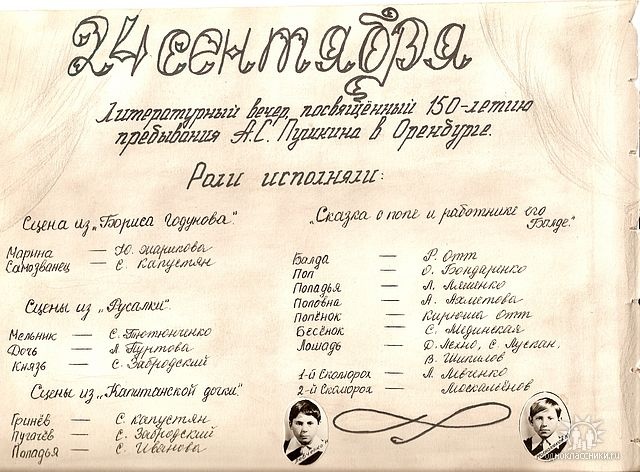 24 сентября
Литературный вечер, посвящённый 150-летию
пребывания А.С. Пушкина в Оренбурге.
Роли исполняли:
Сцена из „Бориса Годунова".
Марина — Ю. Шарикова
Самозванец — С. Капустян
Сцены из „Русалки".
Мельник — С. Тютюнченко
Дочь — Л. Пуртова
Князь — С. Забродский
Сцены из „Капитанской дочки"
Гринёв — С. Капустян
Пугачёв — С. Забродский
Попадья — С. Иванова
„Сказка о попе и работнике его
Балде."
Балда — Р. Отт
Поп — О. Бондаренко
Попадья — Л. Ляшенко
Поповна — А. Ахметова
Попёнок — Кирюша Отт
Бесёнок — С. Мединская
Лошадь — Д. Лехно, С. Лускан,
В. Шипилов
1-й Скоморох — Л. Левченко
2-й Скоморох — Москалёнов
одноклассники.ru